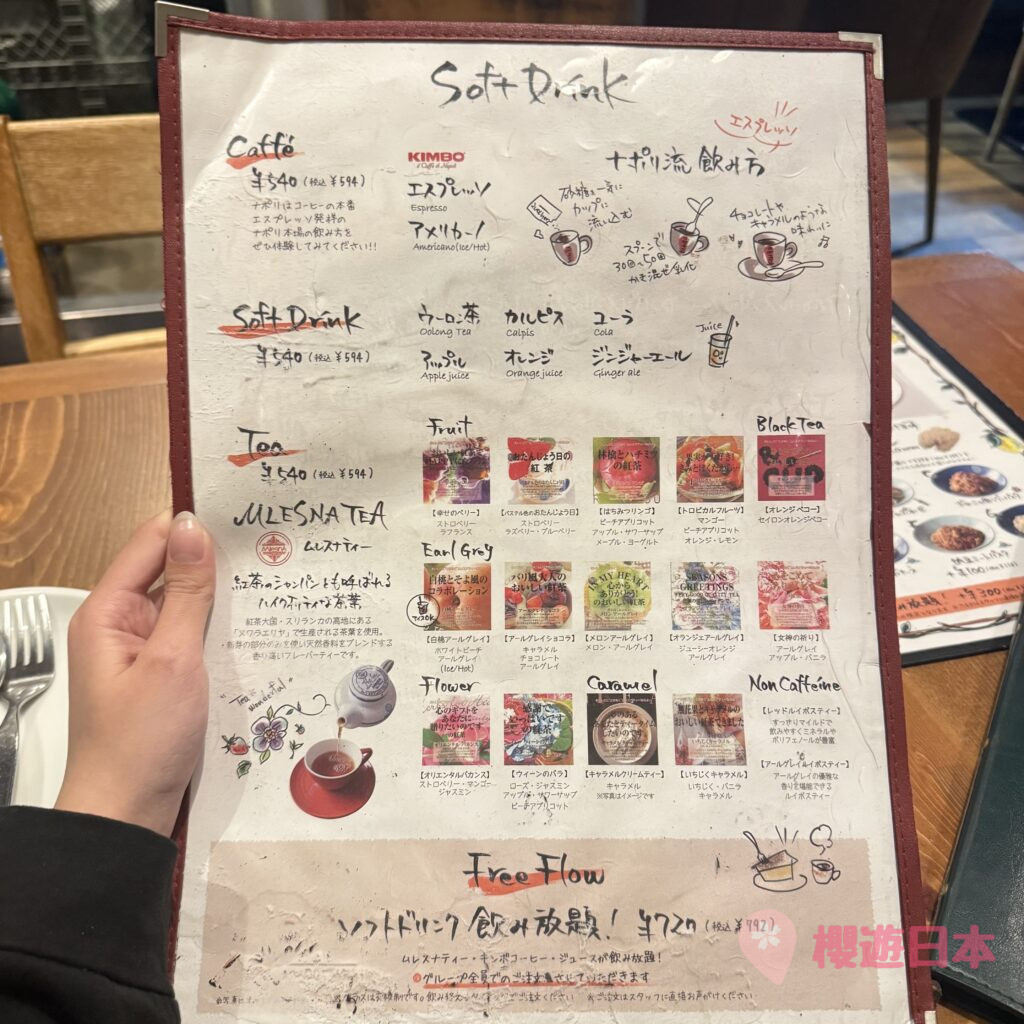 Soft Drink
Caffé
¥540 (税込 ¥594)
ナポリはコーヒーの本番
エスプレッソ発祥の
ナポリ本場の飲み方を
ぜひ体験してみてください!!
KIMBO
エスプレッソ
Espresso
アメリカーノ
Americano(Ice/Hot)
エスプレッソ
ナポリ流 飲み方
砂糖を一気に
カップに
流し込む
スプーンで
30回~50回
かき混ぜ乳化
チョコレートや
キャラメルのような
味わいに
Soft Drink
¥540 (税込 ¥594)
ウーロン茶
Oolong Tea
カルピス
Calpis
コーラ
Cola
アップル
Apple juice
オレンジ
Orange juice
ジンジャーエール
Ginger ale
Juice
Tea
¥540 (税込 ¥594)
MLESNA TEA
ムレスナティー
紅茶のシャンパンとも呼ばれる
ハイクオリティな茶葉
紅茶大国・スリランカの高地にある
「ヌワラエリヤ」で生産される茶葉を使用。
新芽の部分のみを使い天然香料をブレンドする
香り高いフレーバーティーです。
"Tea is wonderful"
Fruit
【幸せのベリー】
ストロベリー
ラフランス
おたんじょう日の
紅茶
【パステル色のおたんじょう日】
ストロベリー
ラズベリー・ブルーベリー
林檎とハチミツ
の紅茶
【はちみつリンゴ】
ピーチアプリコット
アップル・サワーサップ
メープル・ヨーグルト
【トロピカルフルーツ】
マンゴー
ピーチアプリコット
オレンジ・レモン
Black Tea
【オレンジペコー】
セイロンオレンジペコー
Earl Grey
白桃とそよ風の
コラボレーション
アイスOK
【白桃アールグレイ】
ホワイトピーチ
アールグレイ
(Ice/Hot)
パリ風大人の
おいしい紅茶
【アールグレイショコラ】
キャラメル
チョコレート
アールグレイ
MY HEART
心から
ありがとう!
のおいしい紅茶
【メロンアールグレイ】
メロン・アールグレイ
SEASONS
GREETINGS
【オランジェアールグレイ】
ジューシーオレンジ
アールグレイ
【女神の祈り】
アールグレイ
アップル・バニラ
Flower
心のギフトを
あなたに
贈りたいのです
の紅茶
【オリエンタルバカンス】
ストロベリー・マンゴー
ジャスミン
感謝で
いっぱいです
の紅茶
【ウィーンのバラ】
ローズ・ジャスミン
アップル・サワーサップ
ピーチアプリコット
Caramel
【キャラメルクリームティー】
キャラメル
※写真はイメージです
おいしい紅茶できました
いちじくキャラメル
【いちじくキャラメル】
いちじく・バニラ
キャラメル
Non Caffeine
【レッドルイボスティー】
すっきりマイルドで
飲みやすくミネラルや
ポリフェノールが豊富
【アールグレイルイボスティー】
アールグレイの優雅な
香りを堪能できる
ルイボスティー
Free Flow
ソフトドリンク 飲み放題! ¥720 (税込 ¥792)
ムレスナティー・キンボコーヒー・ジュースが飲み放題!
グループ全員でのご注文とさせていただきます
ご注文はスタッフに直接お声がけください
櫻遊日本